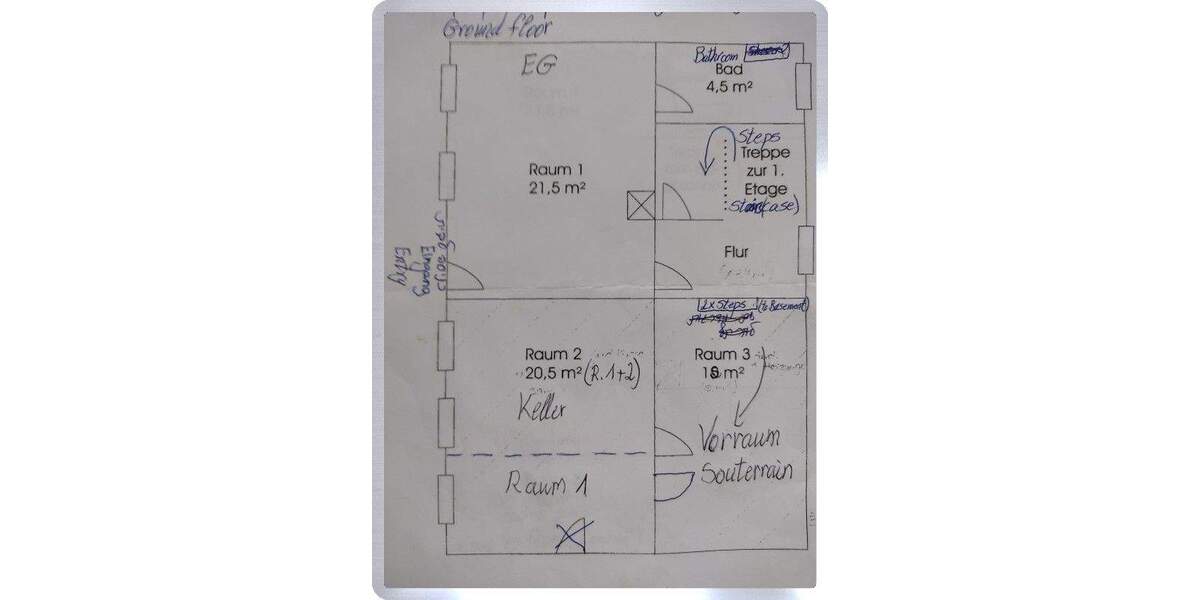 Ground floor
EG
Bathroom
Bad
4,5 m²
Steps
Treppe
zur 1.
Etage
Raum 1
21,5 m²
Flur
Eingang
Entry
2x Steps (to Basement)
Raum 2
20,5 m² (R. 1+2)
Raum 3
18 m²
Keller
Vorraum
Souterrain
Raum 1